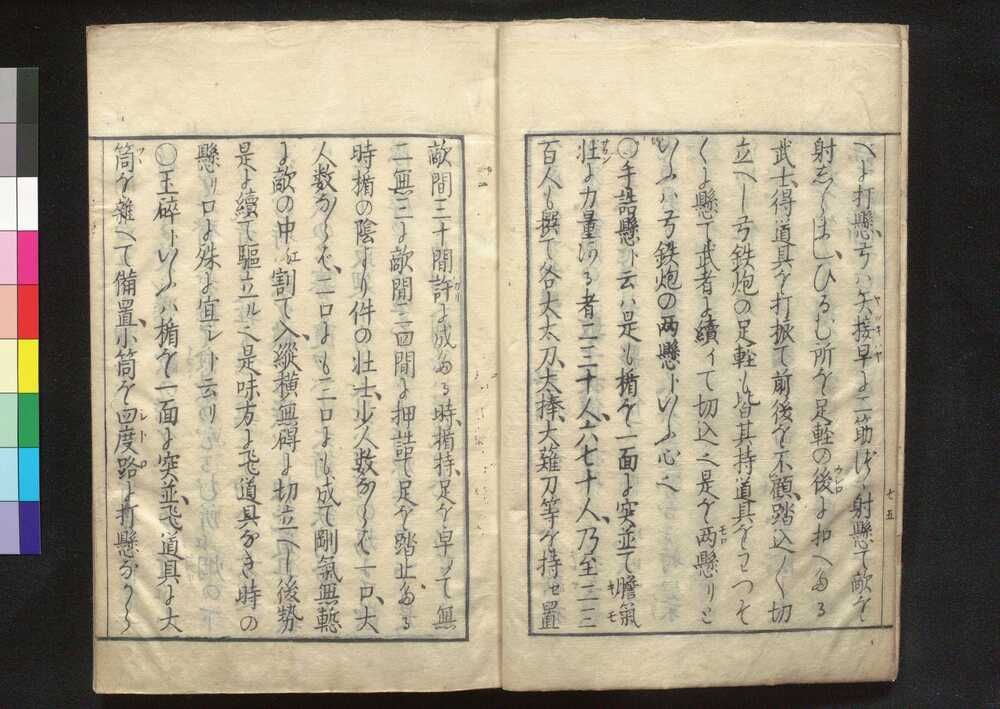 べよ打懸弓ハ矢接早よ二筋ばゝ射懸て敵を
射しらまし、ひるむ所を足軽の後よ扣へゐる
武士得道具を打振て前後を不顧踏込く切
立へし弓鉄炮の足軽も皆其持道具をわつそ
くよ懸て武者よ續イて切込へ是を両懸りと
いふハ弓鉄炮の両懸トいふ心へ
○手詰懸ト云ハ是も楯を一面よ突並て膽氣
壮よ力量ある者二三十人、六七十人、乃至二三
百人も撰て各大太刀、大捧、大薙刀等を持セ置
七五
敵間三十間許よ成ゐる時、楯持、足を早メて無
二無三よ敵間三四間よ押詰て足を踏止ゐる
時楯の陰より件の壮士、少人数ならで一口、大
人数ならで二口よも三口よも成て剛氣無慙
よ敵の中江割て入、縱横無碍よ切立へし後勢
是よ續て驅立ルへ是味方よ飛道具なき時の
懸り口よ殊よ宜レト云り
○玉碎トいふハ楯を一面よ突並、飛道具よ大
筒を雜へて備置、小筒を四度路よ打懸ながら